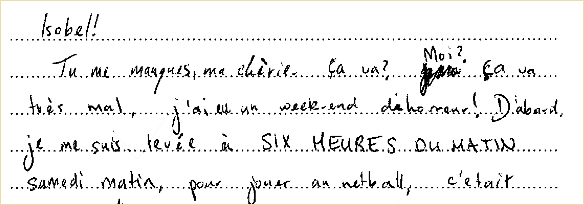 Isobel!
Tu me manques, ma chèrie. Ça va? Moi? Ça va
très mal, j'ai eu un week-end déhorreur! D'abord,
je me suis levée à SIX HEURES DU MATIN
samedi matin, pour jouer au netball, c'etait